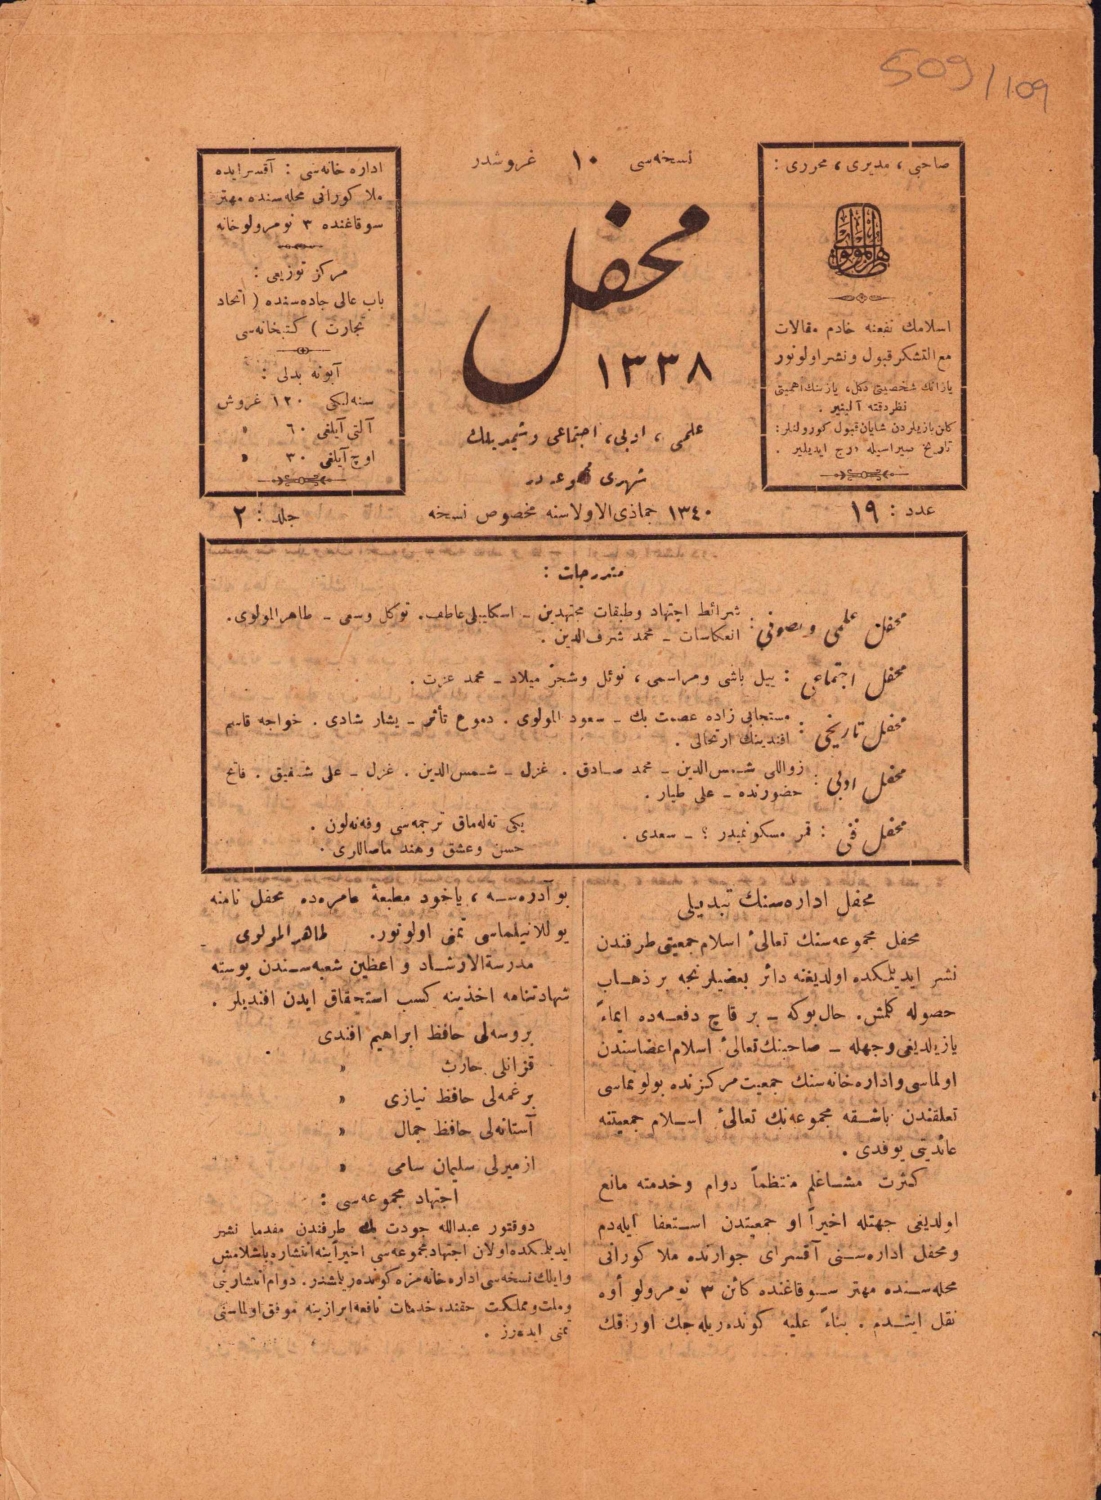 509/109
صاحبی ، مدیری ، محرری :
طاهر المولوی
اسلامك نفعنه خادم مقالات
مع التشكر قبول و نشر اولونور
یازانك شخصیتی دكل، یازینك اهمیتی
نظر دقته آلینیر .
كلن یازیلردن شایان قبول كورولنلر :
تاریخ صیراسیله درج ایدیلیر .
نسخه‌سی ۱۰ غروشدر
محفل
۱۳۳۸
علمی ، ادبی ، اجتماعی
شهری مجموعه‌در
اداره خانه‌سی : آقسرایده
ملا كورانی محله‌سنده مهتر
سوقاغنده ۳ نومرولو خانه
مركز توزیعی :
باب عالی جاده‌سنده ( اتحاد
تجارت ) كتبخانه‌سی
آبونه بدلی :
سنه‌لكی ۱۲۰ غروش
آلتی آیلغی ۶۰ »
اوچ آیلغی ۳۰ »
عدد : ۱۹
۱۳٤۰ جماذی الاولاسنه مخصوص نسخه
جلد : ۲
مندرجات :
محفل علمی و تصوفی : شرائط اجتهاد وطبقات مجتهدین ـ اسكلیبلی عاطف. توكل وسعی ـ طاهر المولوی.
انعكاسات ـ محمد شرف الدین .
محفل اجتماعی : ییل باشی ومراسمی ، نوئل وشجرۀ میلاد ـ محمد عزت .
محفل تاریخی : مستجابی زاده عصمت بك ـ سعود المولوی . دموع تأثر ـ یشار شادی . خواجه قاسم
افندینك ارتحالی .
محفل ادبی : زواللی شمس الدین ـ محمد صادق . غزل ـ شمس الدین . غزل ـ علی شفیق . فاتح
حضورنده ـ علی طیار .
محفل فنی : قمر مسكونمیدر ؟ ـ سعدی .
یكی ته‌له‌ماق ترجمه‌سی وفه‌نه‌لون .
حسن وعشق وهند ماصاللری .
محفل اداره‌سنك تبدیلی
محفل مجموعه‌سنك تعالیٔ اسلام جمعیتی طرفندن
نشر ایدیلمكده اولدیغنه دائر بعضیلرنجه بر ذهاب
حصوله كلمش. حال بوكه ـ بر قاچ دفعه‌ده ایماءً
یازیلدیغی وجهله ـ صاحبنك تعالیٔ اسلام اعضاسندن
اولماسی و اداره خانه‌سنك جمعیت مركزنده بولونماسی
تعلقندن باشقه مجموعه‌نك تعالیٔ اسلام جمعیتنه
عائدیتی یوقدی .
كثرت مشاغلم منتظماً دوام وخدمته مانع
اولدیغی جهتله اخیراً او جمعیتدن استعفا ایله‌دم
ومحفل اداره‌سنی آقسرای جوارنده ملا كورانی
محله‌سنده مهتر سوقاغنده كائن ۳ نومرولو أوه
نقل ایتدم . بناءً علیه كونده‌ریله‌جك اوراقك
بو آدره‌سه ، یاخود مطبعۀ عامره‌ده محفل نامنه
یوللانیلماسی تمنی اولونور. طاهر المولوی
مدرسة الارشاد واعظین شعبه‌سندن بوسنه
شهادتنامه اخذینه كسب استحقاق ایدن افندیلر .
بروسه‌لی حافظ ابراهیم افندی
قزانلی حارث »
برغمه‌لی حافظ نیازی »
آستانه‌لی حافظ جمال »
ازمیرلی سلیمان سامی »
اجتهاد مجموعه‌سی :
دوقتور عبدالله جودت بك طرفندن مقدما نشر
ایدیلمكده اولان اجتهاد مجموعه‌سی اخیراً ینه انتشاره باشلامش
وایلك نسخه‌سی اداره خانه‌مزه كونده‌ریلمشدر. دوام انتشارینی
وملت ومملكت حقنده خدمات نافعه ابرازینه موفق اولماسنی
تمنی ایده‌رز .